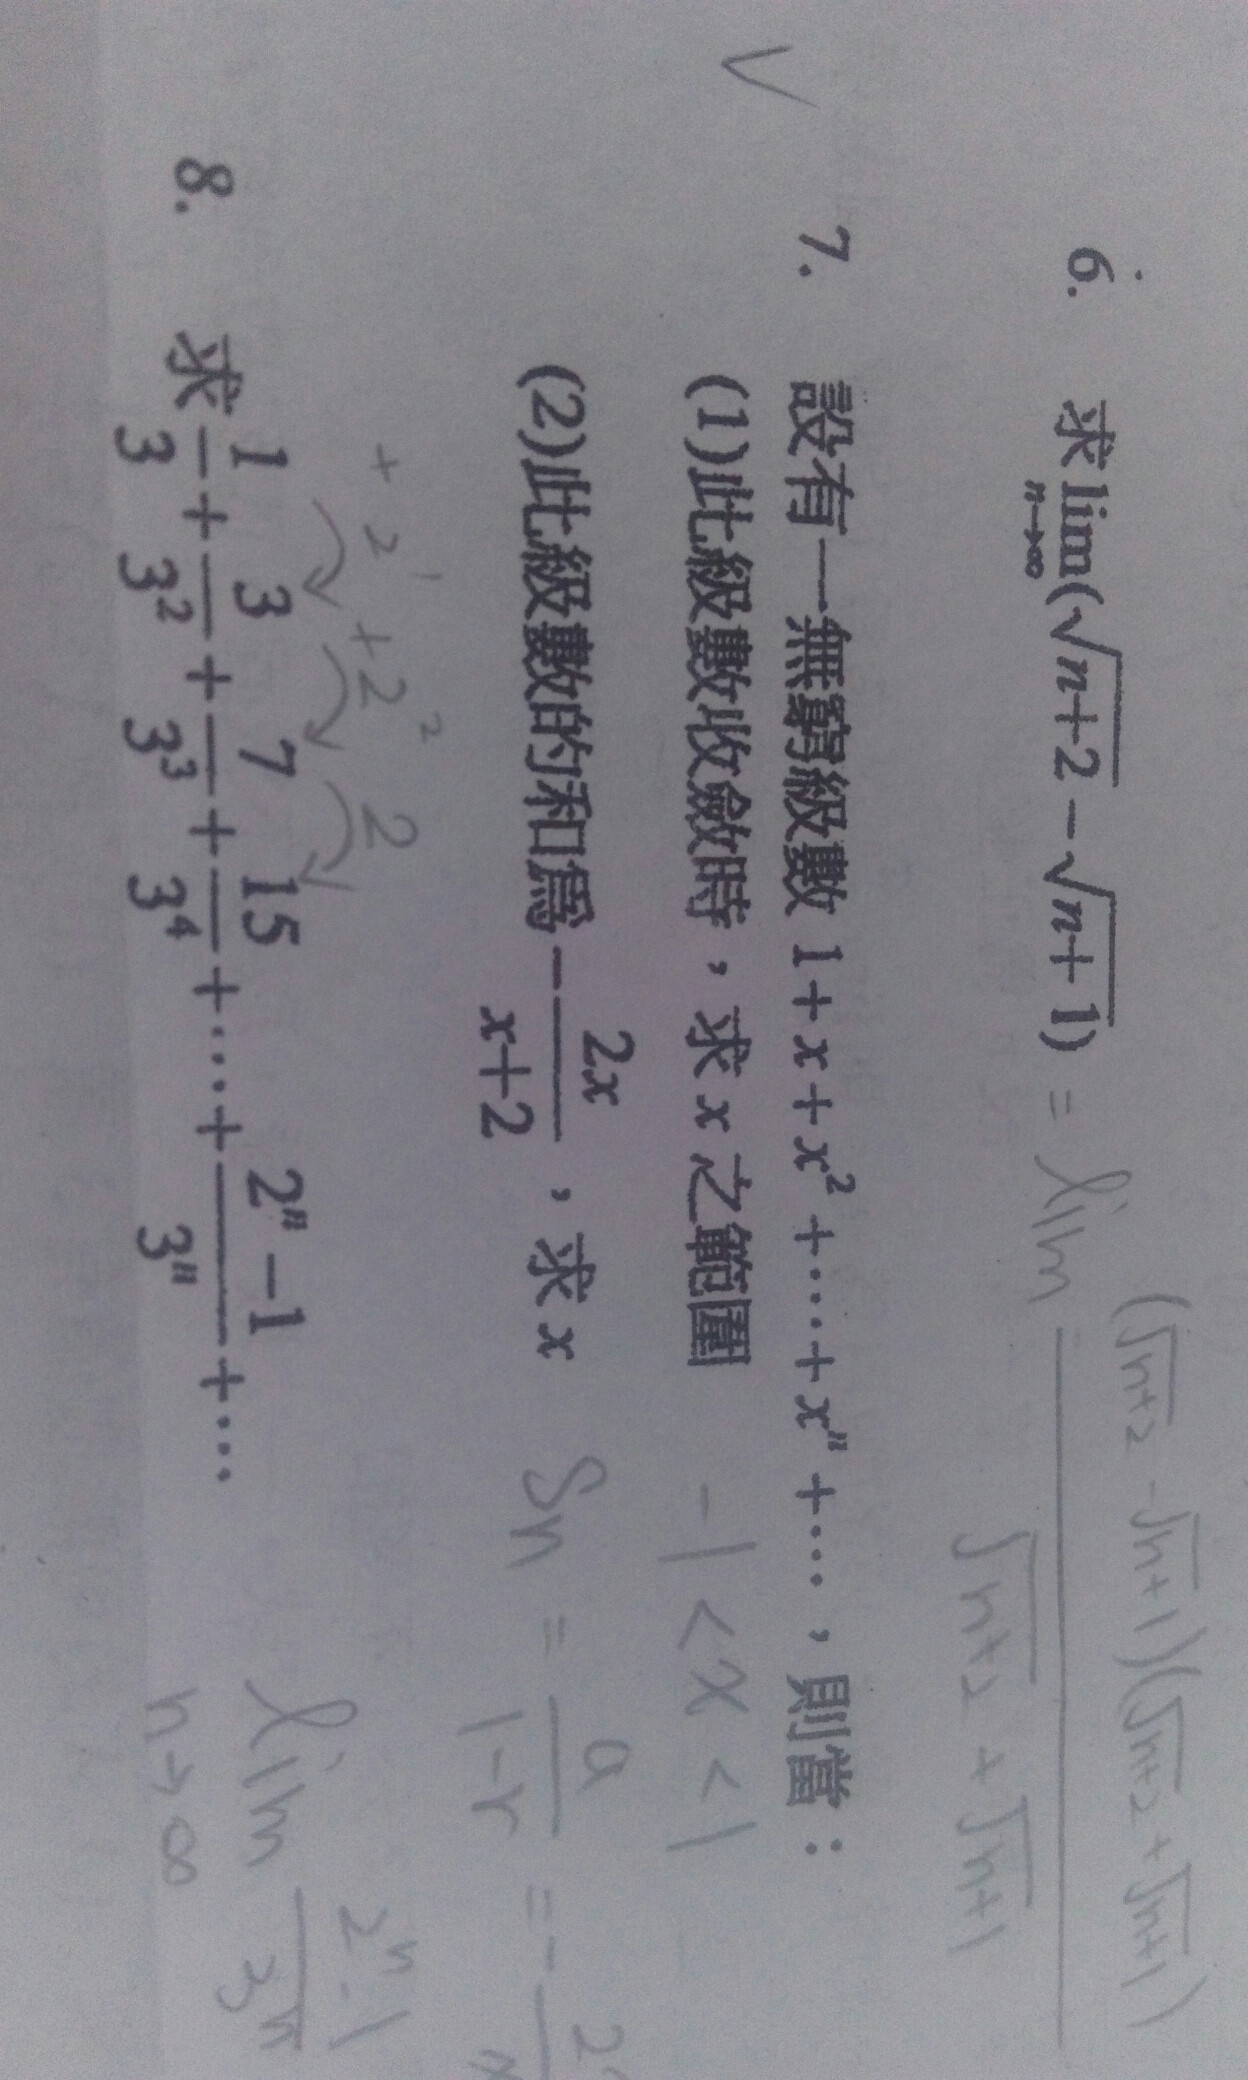 6. 求 lim n→∞ (√n+2 − √n+1) = lim (√n+2 - √n+1)(√n+2 + √n+1) / √n+2 + √n+1
7. 設有一無窮級數 1+x+x²+⋯+xⁿ+⋯，則當：
(1)此級數收斂時，求 x 之範圍 -1 < x < 1
(2)此級數的和為 − 2x/x+2，求 x Sn = a/1-r = -
+2¹ +2² 2
8. 求 1/3 + 3/3² + 7/3³ + 15/3⁴ + ⋯ + 2ⁿ−1/3ⁿ + ⋯ lim n→∞ 2ⁿ-1/3ⁿ